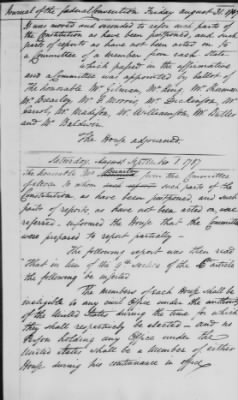 Journal of the federal Convention Friday August 31. 1787
It was moved and seconded to refer such parts of
the Constitution as have been postponed, and such
parts of reports as have not been acted on to
a Committee of a Member from each State
which passed in the affirmative
and a Committee was appointed by ballot of
The honorable Mr Gilman, Mr King, Mr Sherman
Mr Brearley, Mr G Morris, Mr Dickinson, Mr
Carrol, Mr Madison, Mr Williamson, Mr Butler
and Mr Baldwin.
The House adjourned.
Saturday, September 1. 1787
The honorable Mr Brearley from the Committee
of eleven to whom such parts of the
Constitution as have been postponed, and such
parts of reports, as have not been acted on, were
referred, informed the House that the Committee
were prepared to report partially —
The following report was then read
That in lieu of the 9th section of the 6 article
the following be inserted
The members of each House shall be
ineligible to any civil Office under the authority
of the United States during the time for which
they shall respectively be elected — and no
Person holding any Office under the
United States shall be a Member of either
House during his continuance in office